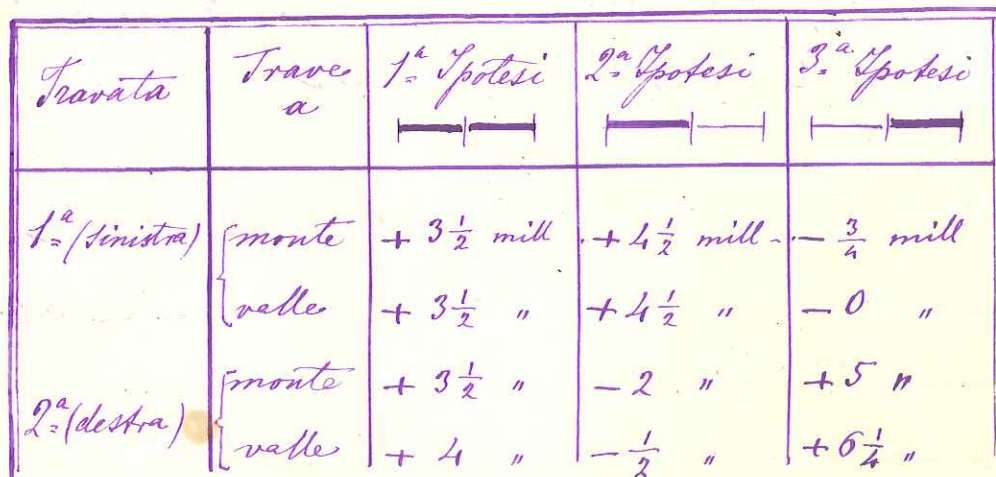 Travata | Trave a | 1ª Ipotesi | 2ª Ipotesi | 3ª Ipotesi
1ª (sinistra) | monte | + 3 1/2 mill | + 4 1/2 mill | - 3/4 mill
valle | + 3 1/2 " | + 4 1/2 " | - 0 "
2ª (destra) | monte | + 3 1/2 " | - 2 " | + 5 "
valle | + 4 " | - 1/2 " | + 6 1/4 "